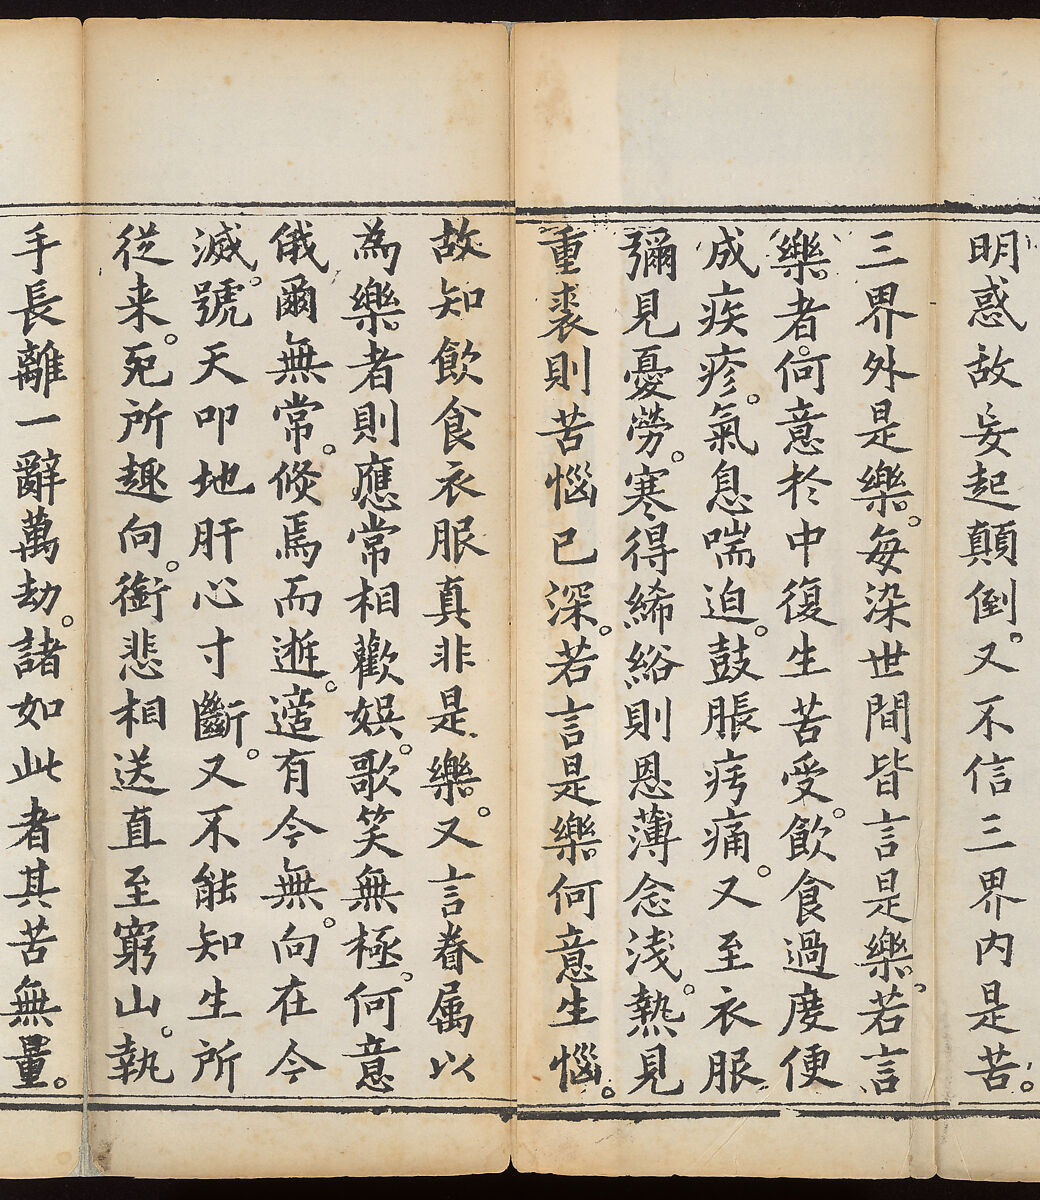 明惑故妄起顛倒。又不信三界內是苦。
三界外是樂。每染世間皆言是樂。若言
樂者。何意於中復生苦受。飲食過度便
成疾疹。氣息喘迫。鼓脹疞痛。又至衣服
彌見憂勞。寒得絺綌則恩薄念淺。熱見
重裘則苦惱已深。若言是樂。何意生惱。
故知飲食衣服真非是樂。又言眷属以
為樂者則應常相歡娛。歌笑無極。何意
俄爾無常。倏焉而逝。適有今無。向在今
滅。號天叩地肝心寸斷。又不能知生所
從来。死所趣向。銜悲相送直至窮山。執
手長離一辭萬劫。諸如此者其苦無量。